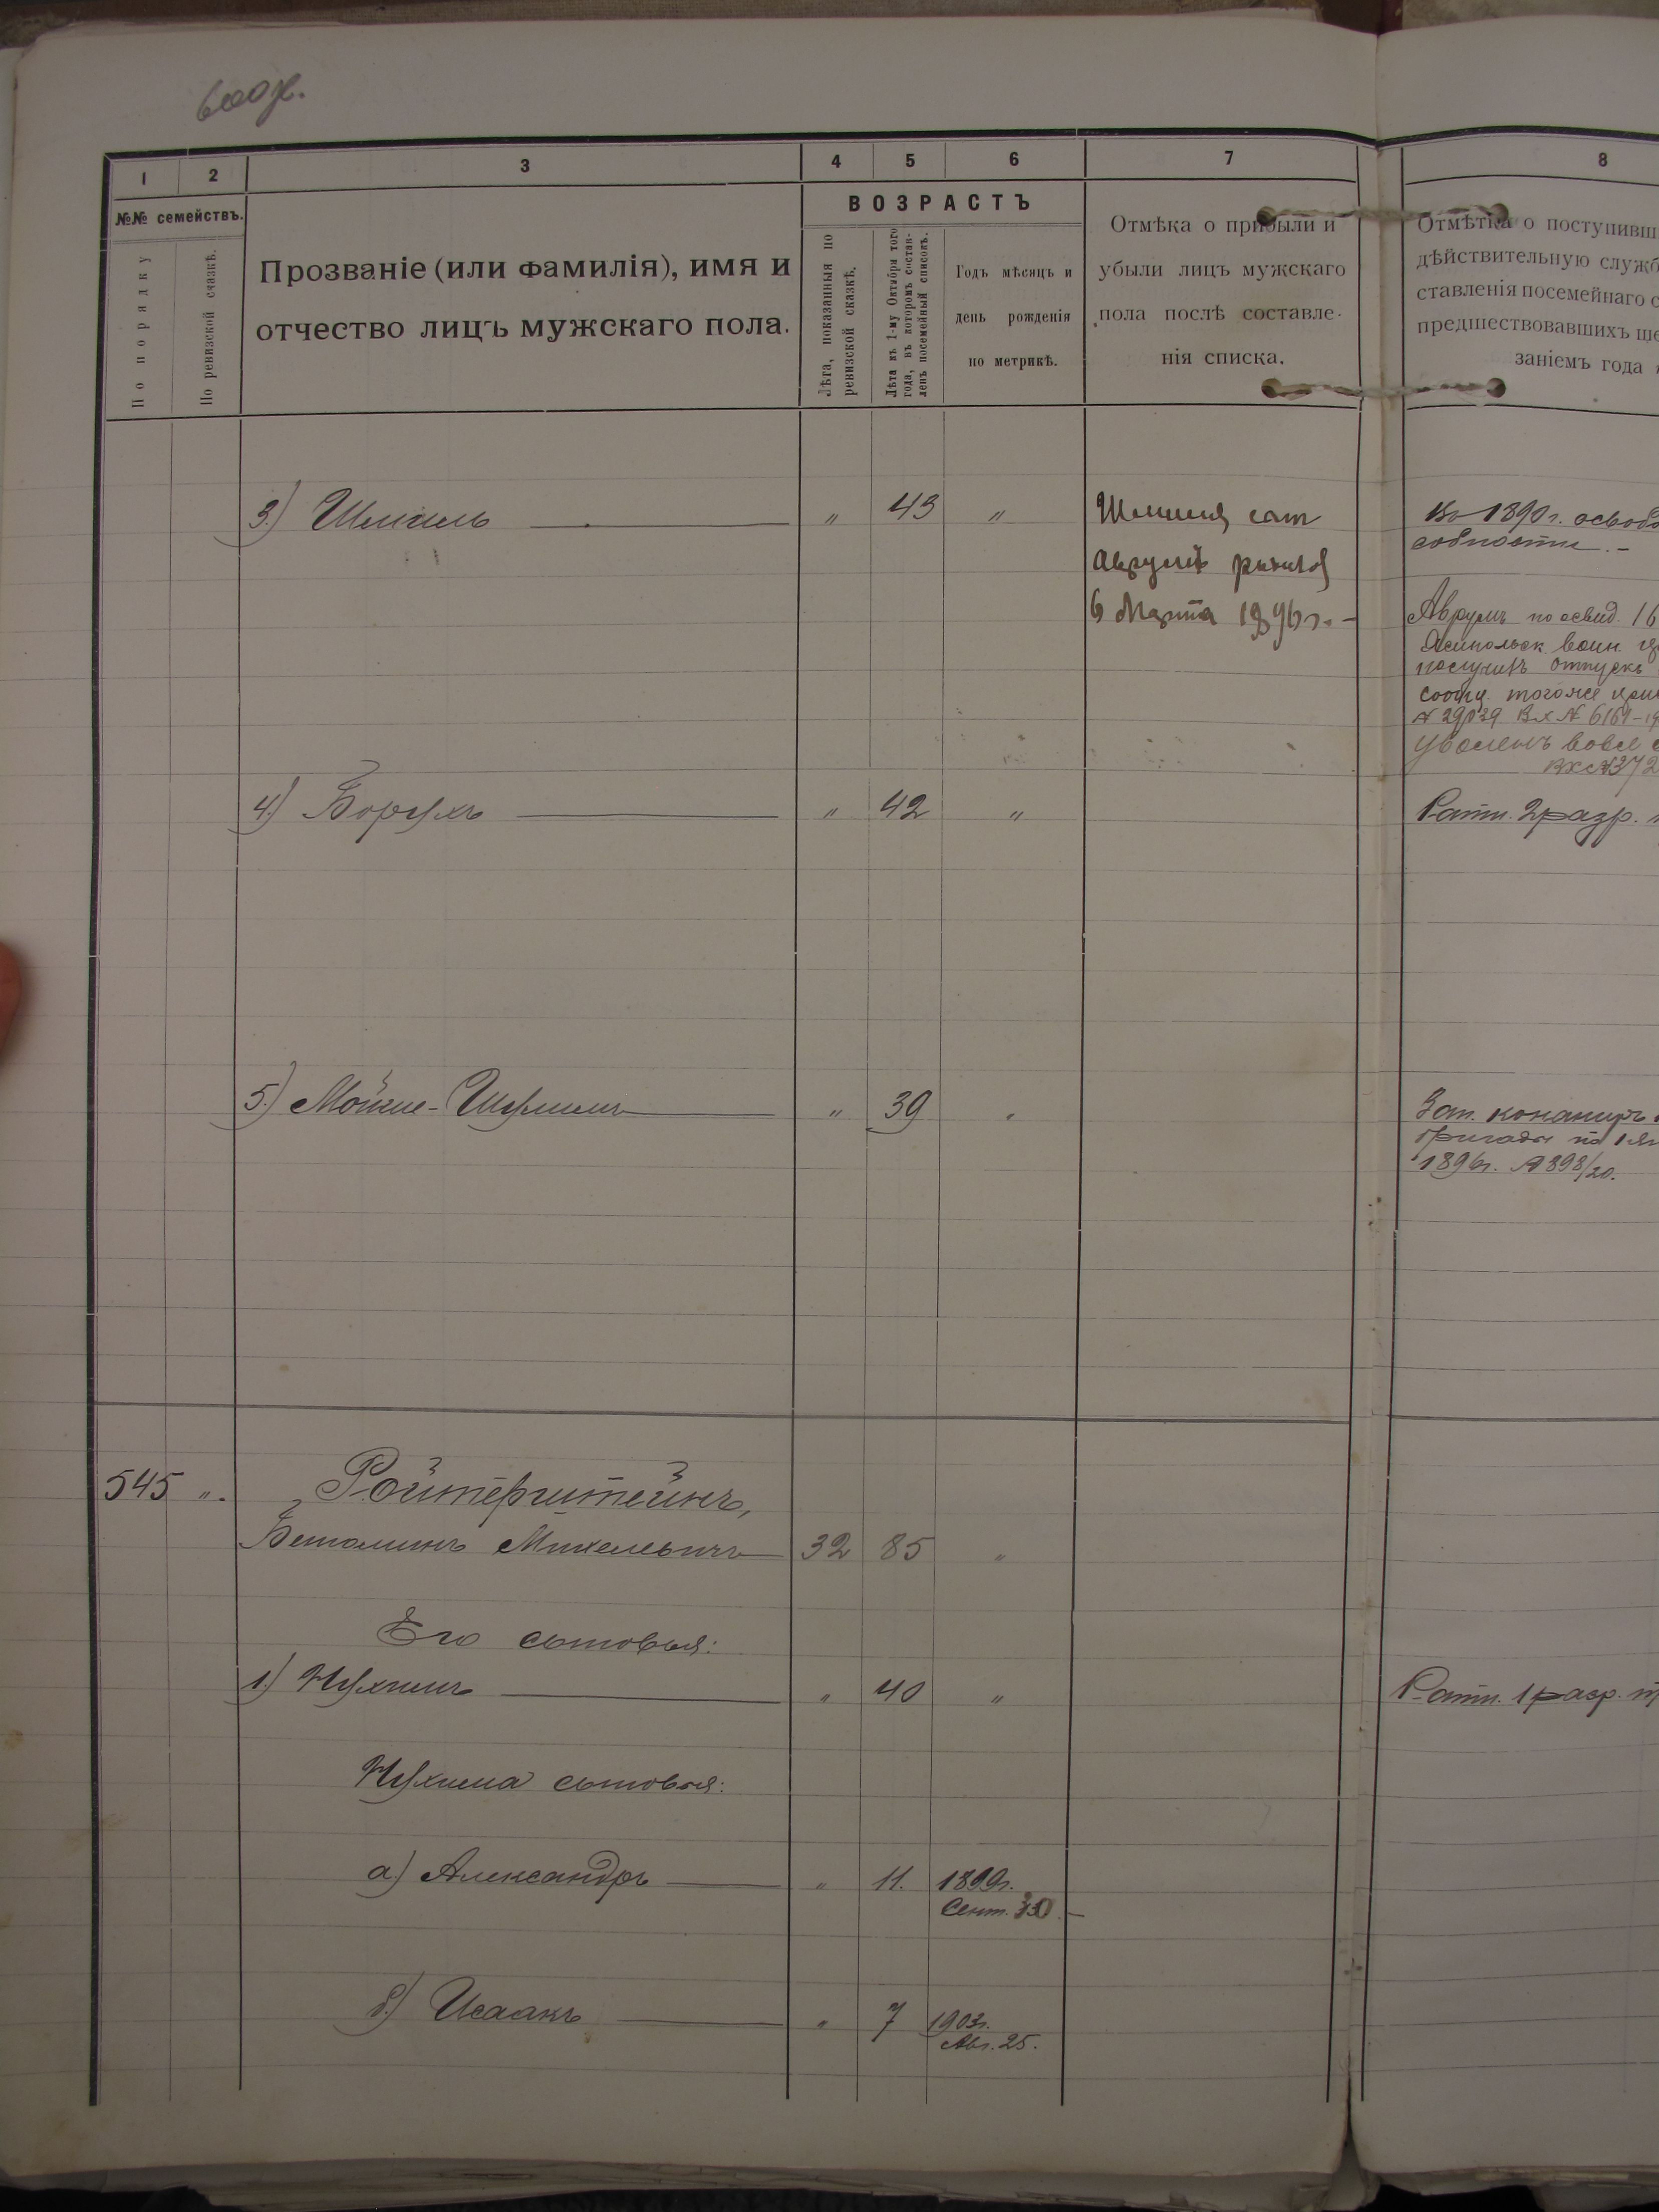 600 об.
1 2 3 4 5 6 7 8
№№ семействъ.
По порядку
По ревизской сказкѣ.
Прозваніе (или фамилія), имя и
отчество лицъ мужскаго пола.
ВОЗРАСТЪ
Лѣта, показанныя по
ревизской сказкѣ.
Лѣта къ 1-му Октября того
года, въ которомъ состав-
ленъ посемейный списокъ.
Годъ мѣсяцъ и
день рожденія
по метрикѣ.
Отмѣка о прибыли и
убыли лицъ мужскаго
пола послѣ составле-
нія списка.
Отмѣтка о поступивш
дѣйствительную служб
ставленія посемейнаго с
предшествовавшихъ
заніемъ года
3.) Шмиль " 43 "
сын
Аврумъ родился
6 Марта 1896 г. -
Въ 1890 г. освобо
собности. -
Аврумъ по освид. 16
воин.
отпускъ
тогоже
№ 29039 Вх № 6169
Уволенъ вовсе
4.) Борухъ " 42 "
Ратн. 2 разр.
5.) Мойше-Шулимъ " 39 "
Зап. канониръ
бригады по 1 ян
1896 г. № 898/20.
545 ".
Ройтерштейнъ,
Беньаминъ Михелевичъ 32 85 "
Его сыновья:
1.) Нухимъ " 40 "
Ратн. 1 разр.
Нухима сыновья:
а) Александръ " 11. 1899 г.
Сент. 30. -
б.) Исаакъ " 7 1903 г.
Авг. 25.